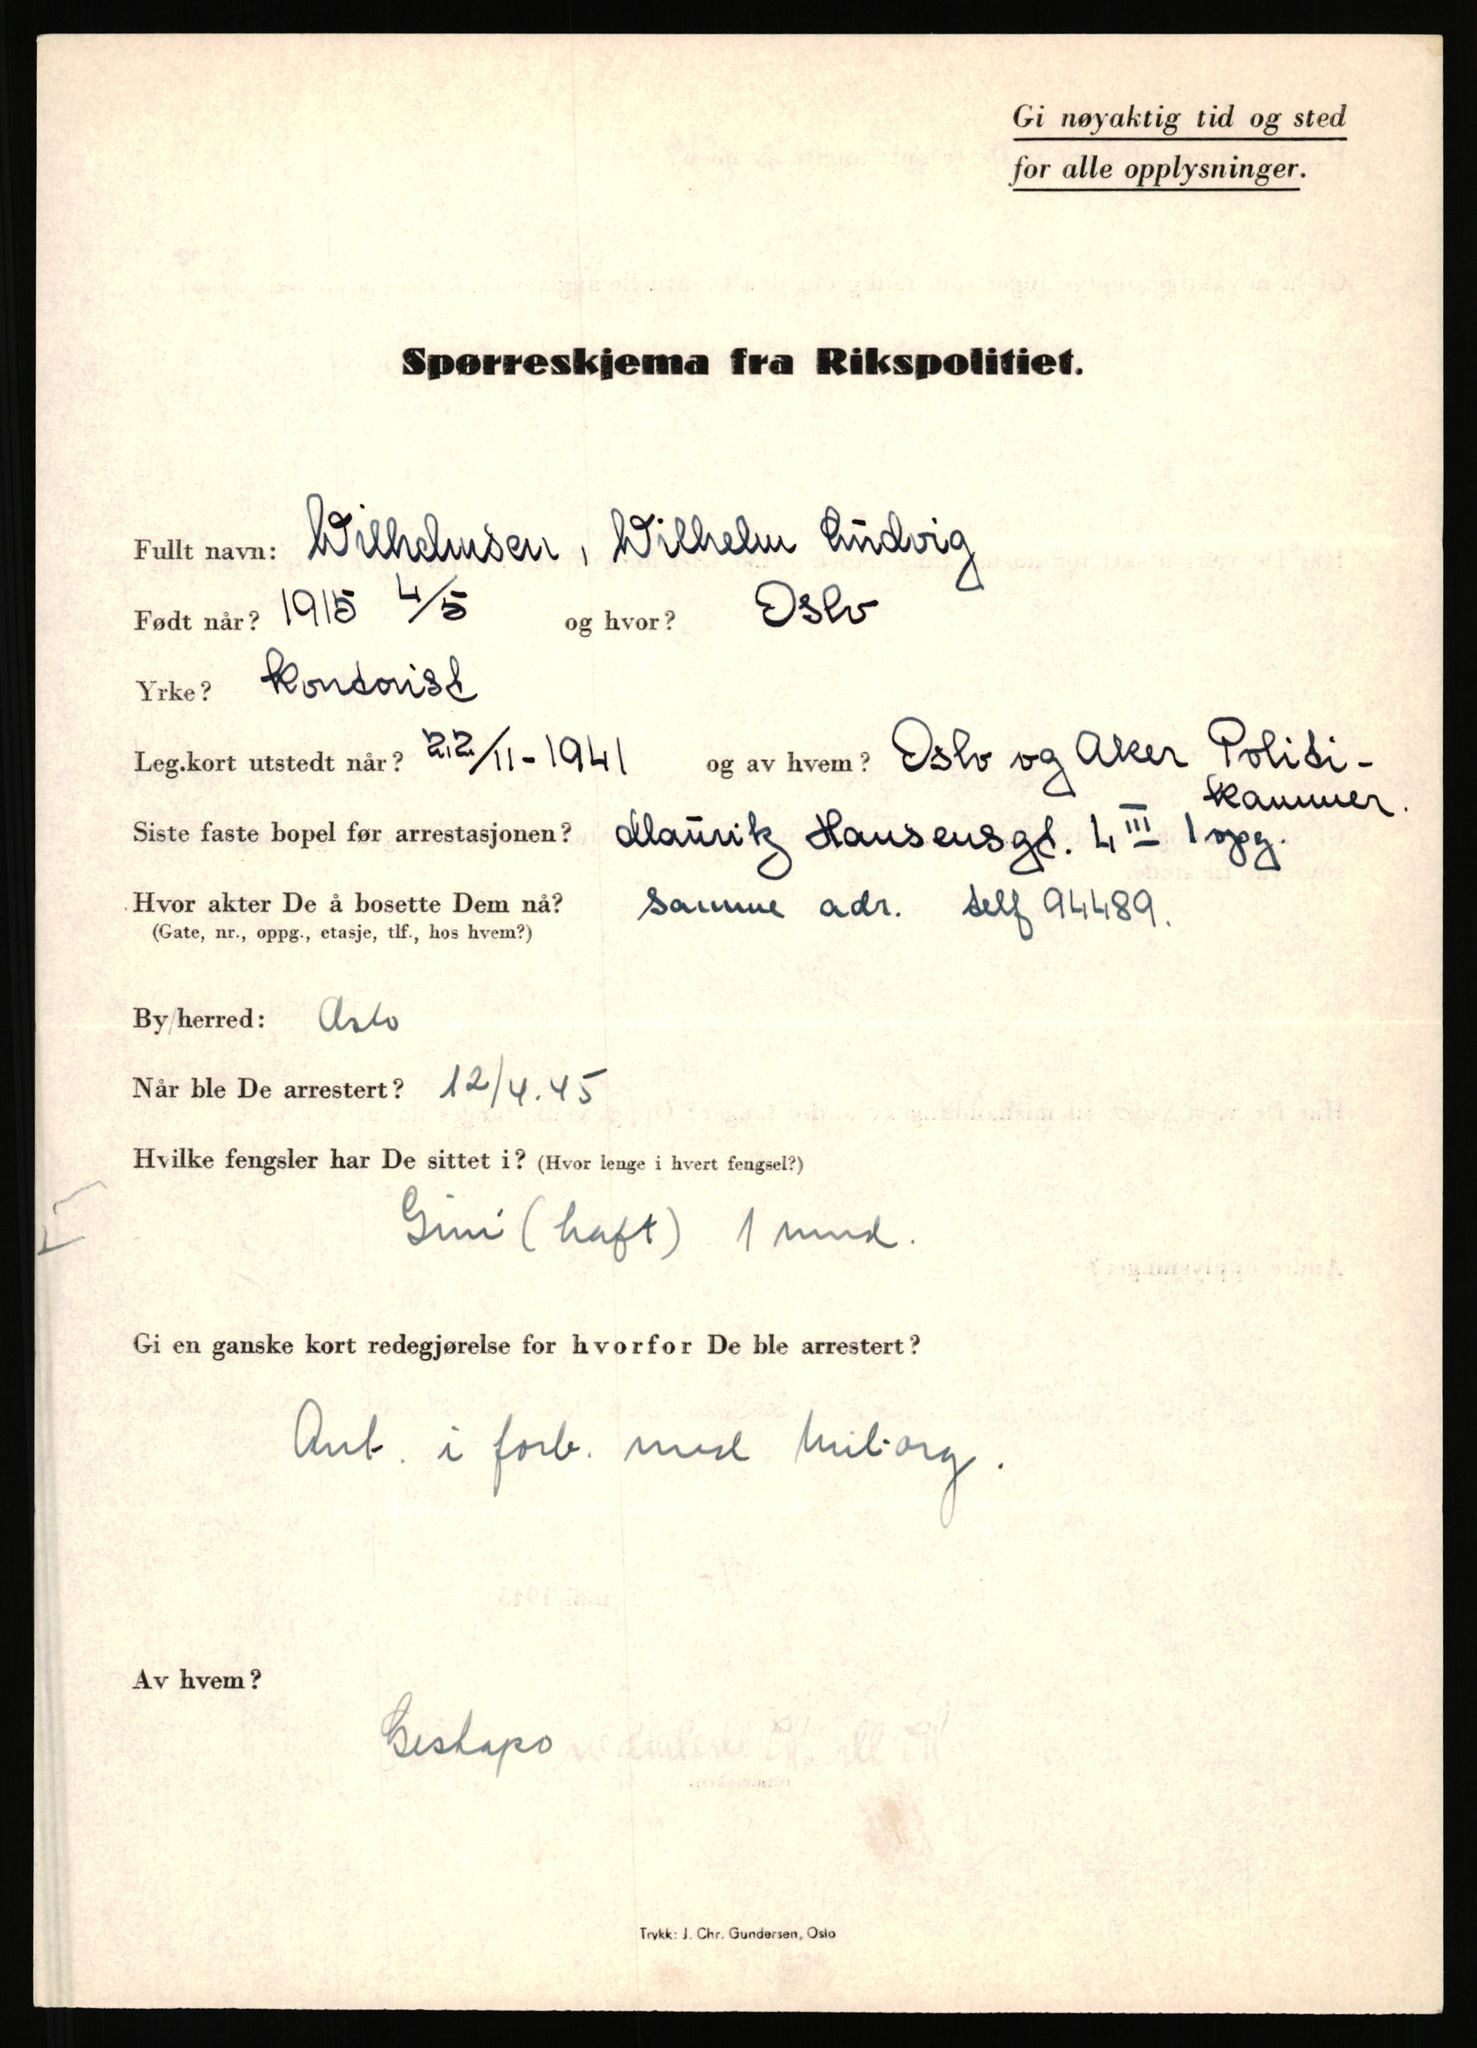 Gi nøyaktig tid og sted
for alle opplysninger.
Spørreskjema fra Rikspolitiet.
Fullt navn: Wilhelmsen, Wilhelm Ludvig
Født når? 1915 4/5 og hvor? Oslo
Yrke? Kontorist
Leg.kort utstedt når? 22/11-1941 og av hvem? Oslo og Aker Politi-
kammer.
Siste faste bopel før arrestasjonen? Mauritz Hansensgt. 4 III 1 opg.
Hvor akter De å bosette Dem nå? samme adr. telf 94489.
(Gate, nr., oppg., etasje, tlf., hos hvem?)
By/herred: Oslo
Når ble De arrestert? 12/4.45
Hvilke fengsler har De sittet i? (Hvor lenge i hvert fengsel?)
Grini (haft) 1 mnd.
Gi en ganske kort redegjørelse for hvorfor De ble arrestert?
i forb. med Mil-org.
Av hvem?
Gestapo
Trykk: J. Chr. Gundersen, Oslo